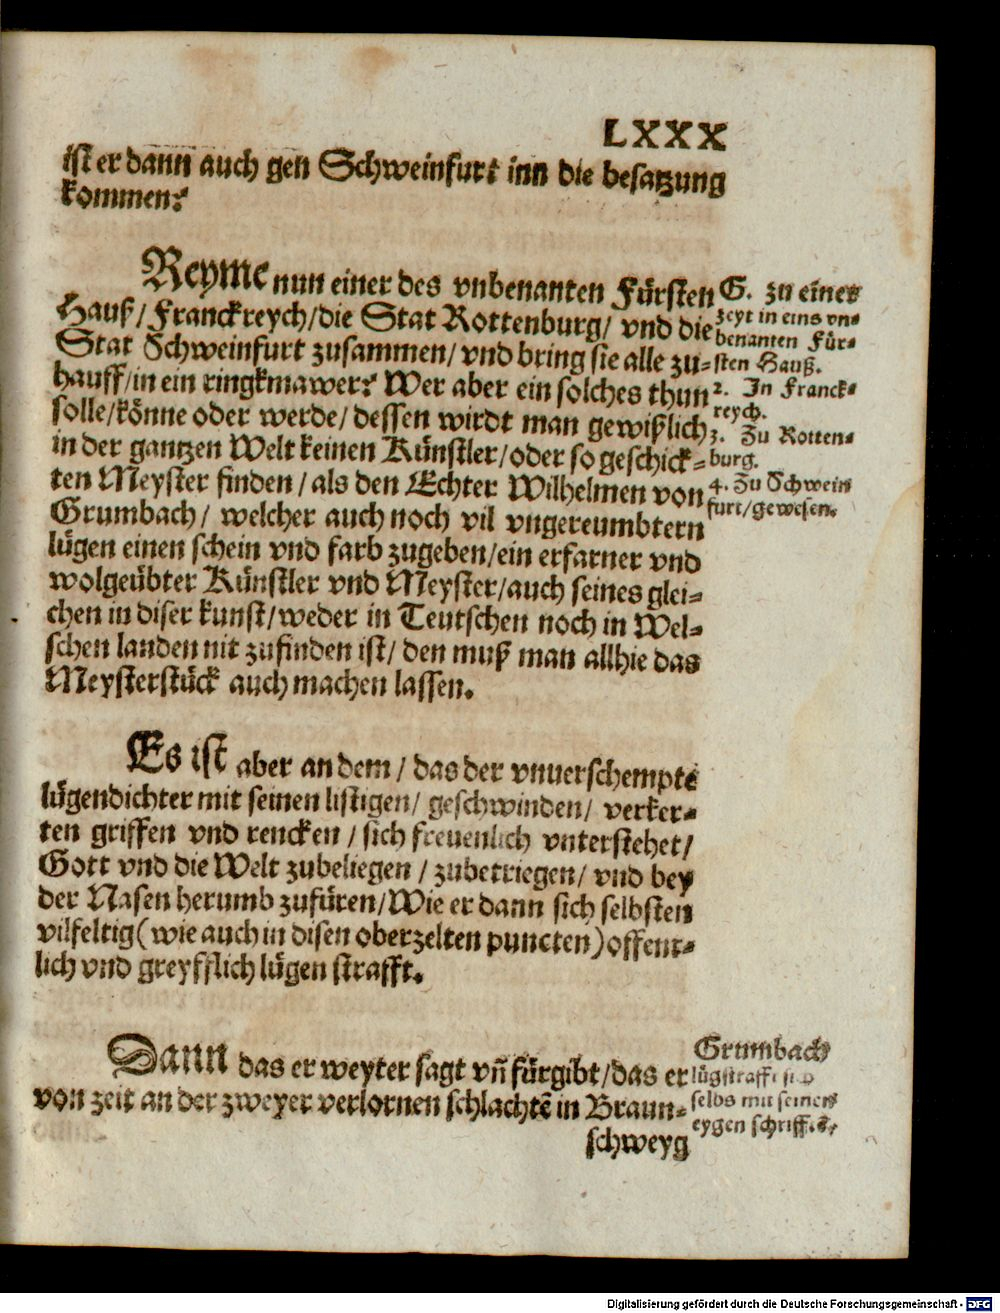 LXXX
ist er dann auch gen Schweinfurt inn die besatzung
kommen?
Reyme nun einer des vnbenanten Fürsten
Hauß/ Franckreych/die Stat Rottenburg/ vnd die
Stat Schweinfurt zusammen/ vnd bring sie alle zu-
hauff/in ein ringkmawer? Wer aber ein solches thun
solle/könne oder werde/ dessen wirdt man gewißlich
in der gantzen Welt keinen Künstler/oder so geschick-
ten Meyster finden/ als den Echter Wilhelmen von
Grumbach/ welcher auch noch vil vngereumbtern
lügen einen schein vnd farb zugeben/ein erfarner vnd
wolgeübter Künstler vnd Meyster/auch seines glei-
chen in diser kunst/weder in Teutschen noch in Wel-
schen landen nit zufinden ist/ den muß man allhie das
Meysterstück auch machen lassen.
G. zu eines
zeyt in eins vn-
benanten Für-
sten Hauß.
2. In Franck-
reych.
3. Zu Rotten-
burg.
4. Zu Schwein
furt/gewesen.
Es ist aber an dem/ das der vnuerschempte
lügendichter mit seinen listigen/ geschwinden/ verker-
ten griffen vnd rencken/ sich freuenlich vnterstehet/
Gott vnd die Welt zubeliegen/ zubetriegen/ vnd bey
der Nasen herumb zufüren/Wie er dann sich selbsten
vilfeltig(wie auch in disen oberzelten puncten)offent-
lich vnd greyfflich lügen strafft.
Dann das er weyter sagt vñ fürgibt/das er
von zeit an der zweyer verlornen schlachtē in Braun-
schweyg
Grumbach
lügstrafft sich
selbs mit seinen
eygen schrifftē
Digitalisierung gefördert durch die Deutsche Forschungsgemeinschaft - DFG